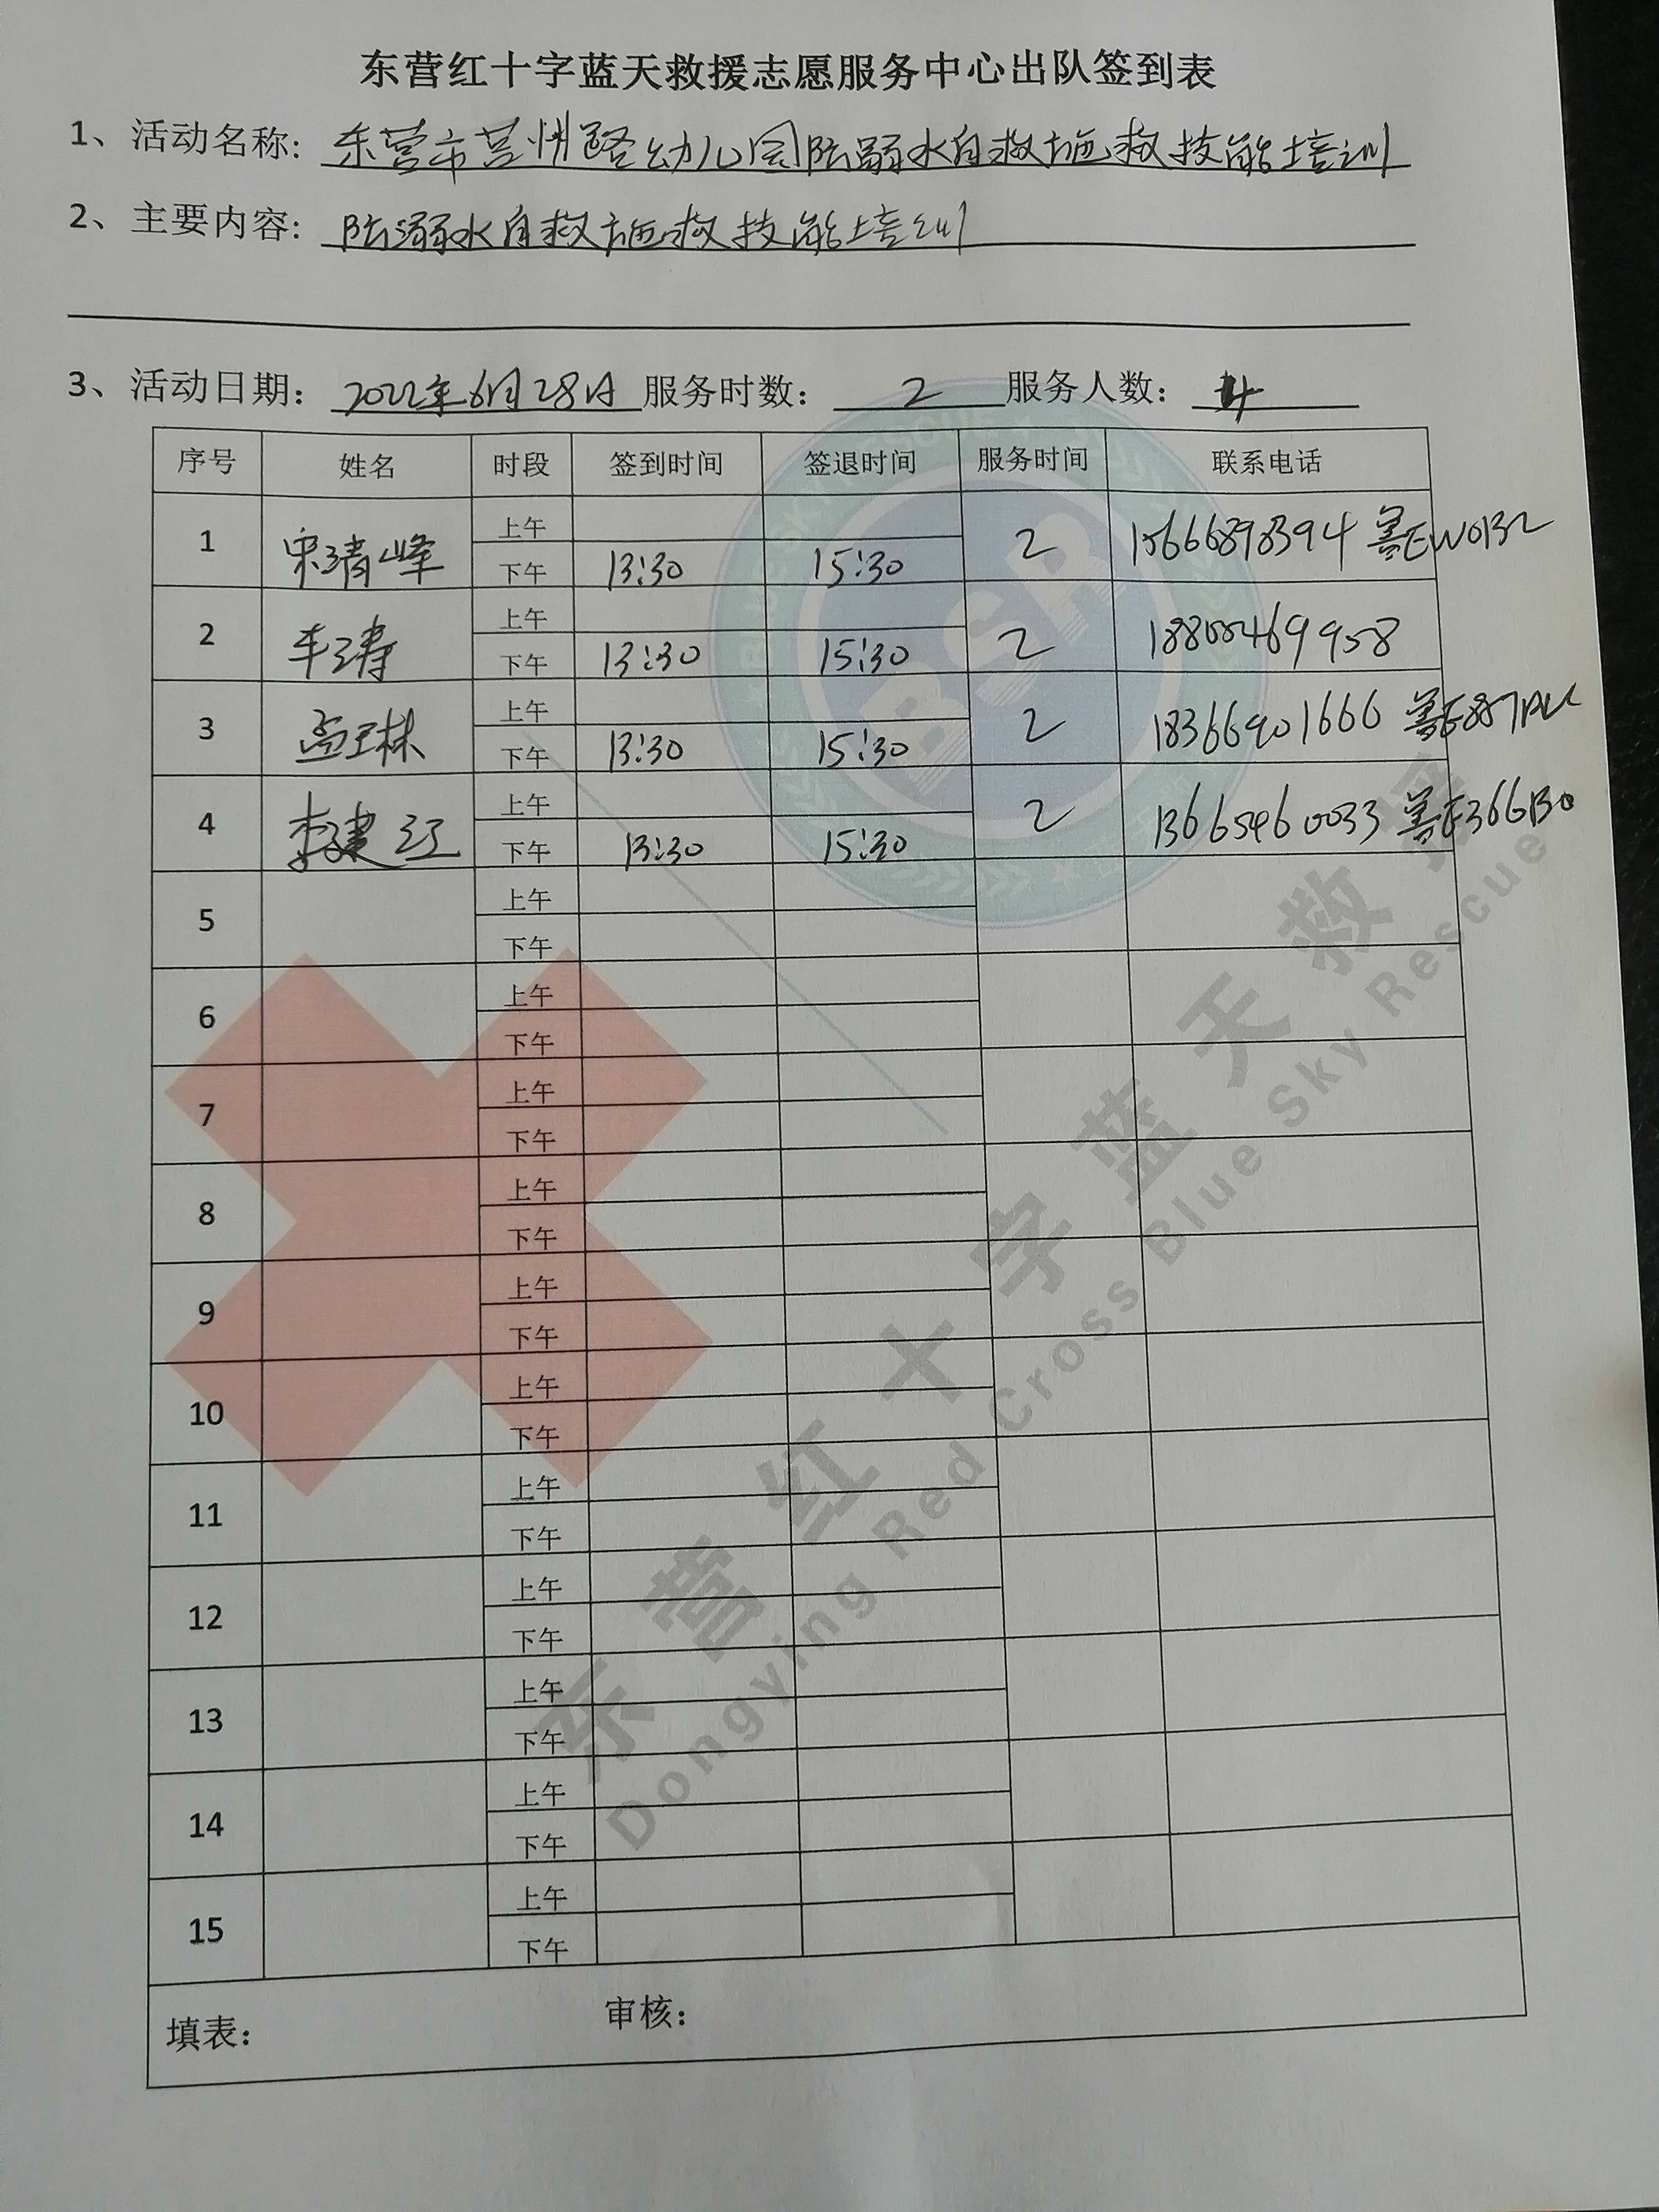 东营红十字蓝天救援志愿服务中心出队签到表
1、活动名称: 东营市莒州路幼儿园防溺水自救施救技能培训
2、主要内容: 防溺水自救施救技能培训
3、活动日期: 2022年6月28日 服务时数: 2 服务人数: 4
序号 姓名 时段 签到时间 签退时间 服务时间 联系电话
1 宋清峰 上午
下午 13:30 15:30 2 15666898394 鲁EW01B2
2 车涛 上午
下午 13:30 15:30 2 18805469958
3 孟琳 上午
下午 13:30 15:30 2 18366901666
4 李建江 上午
下午 13:30 15:30 2 13665460033 鲁E366B0
5 上午
下午
6 上午
下午
7 上午
下午
8 上午
下午
9 上午
下午
10 上午
下午
11 上午
下午
12 上午
下午
13 上午
下午
14 上午
下午
15 上午
下午
填表: 审核:
东营红十字蓝天救援
Dongying Red Cross Blue Sky Rescue
BSR